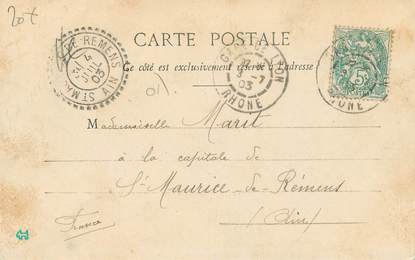 20+
CARTE POSTALE
Ce côté est exclusivement réservé à l'adresse
DE REMENS
4
JUIL
03
AIN
3 -7
03
RHONE
RHONE
5c
Mademoiselle Marit
à la capitale de
St Maurice-de-Rémens
(Ain)
France